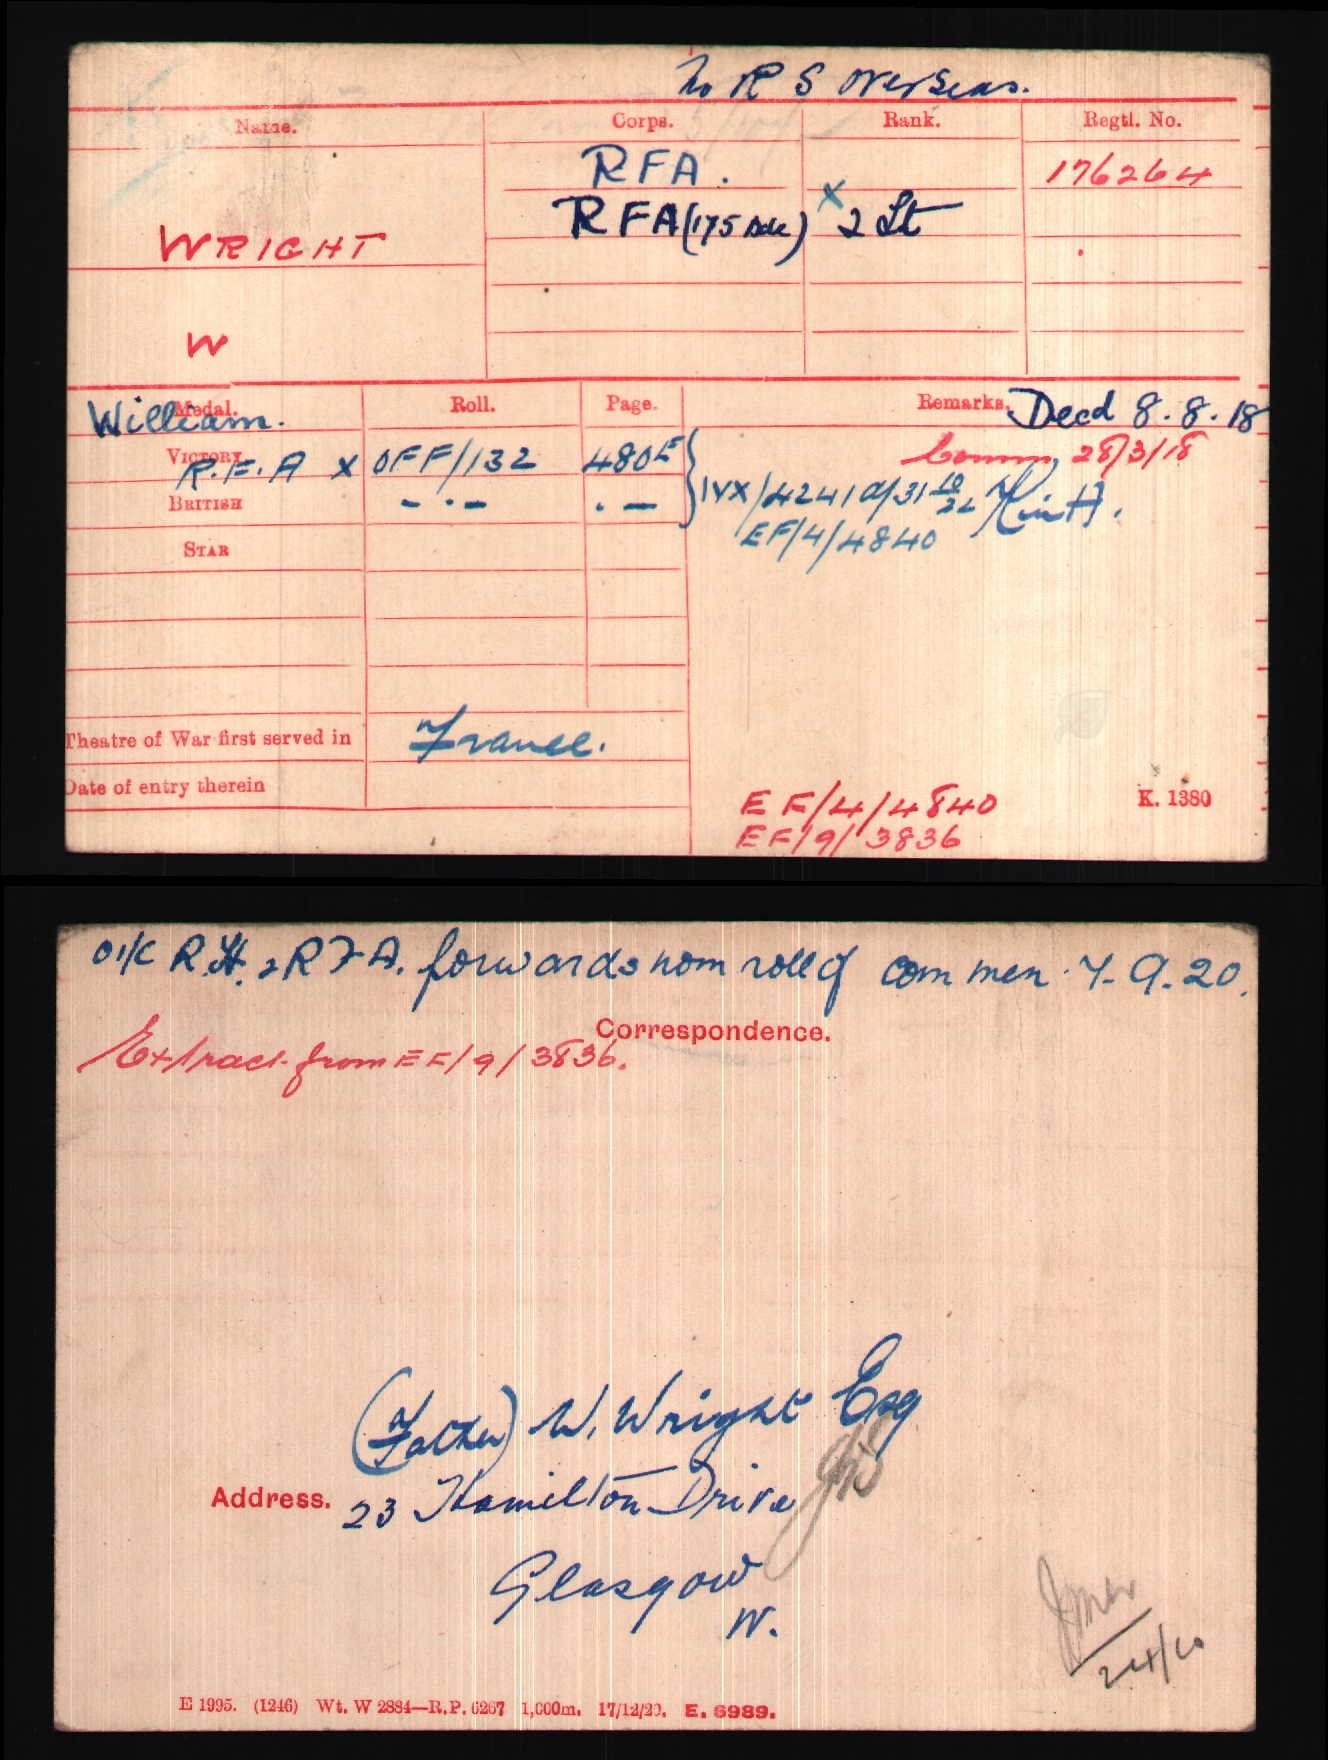 No R S Overseas.
Name. Corps. Rank. Regtl. No.
RFA. 176264
RFA (175 Bde) x 2 Lt
WRIGHT
W
William.
Medal. Roll. Page. Remarks. Decd 8.8.18
Comm, 28/3/18
VICTORY R.F.A x OFF/132 480E
BRITISH - . - . - IVX/4241
EF/4/4840
STAR
Theatre of War first served in France.
Date of entry therein
EF/4/4840 K. 1380
EF/9/3836
O i/c R.H. & R.F.A. forwards nom roll of com men 7.9.20.
Correspondence.
Extract from EF/9/3836.
(Father) W. Wright Esq
Address. 23 Hamilton Drive
Glasgow
W.
E 1995. (1246) Wt. W 2884—R.P. 6267 1,000m. 17/12/20. E. 6989.